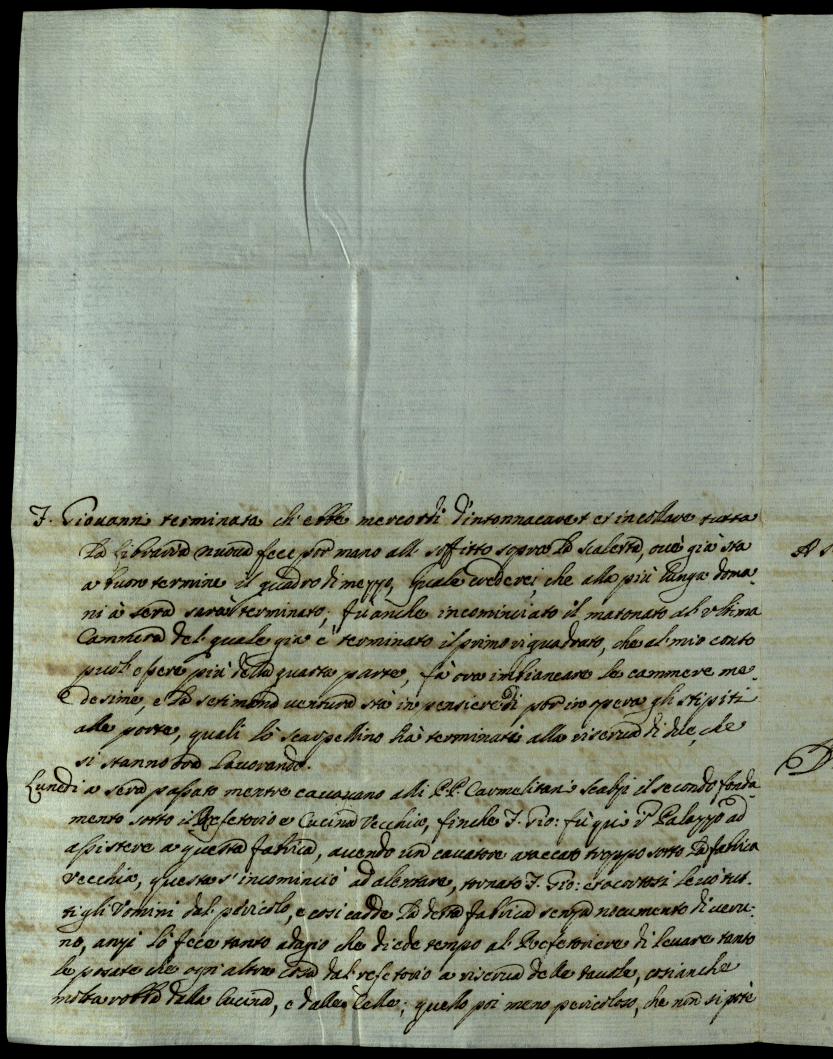 F. Giovanni terminata ch'ebbe mercordì d'intonnacare et incollare tutta
la libraria nuova fece por mano all soffitto sopra la scaletta, ove già sta
a buon termine il quadro di mezzo, quale crederei che alla più lunga doma=
ni à sera sarà terminato; fù anche incominciato il matonato al ultima
Cammera del quale già è terminato il primo riquadrato, che al mio conto
può essere più della quarta parte, fà ora imbiancare le cammere me=
desime, e la setimana ventura stà in pensiere di por in opera gli stipiti
alle porte, quali lo scarpellino hà terminati alla riserva di due, che
si stanno ora lavorando.
Lunedi a sera passato mentre cavavano alli P.P. Carmelitani Scalzi il secondo fonda=
mento sotto il Refetorio e Cucina Vecchia, finche F. Gio: fù qui in Palazzo ad
assistere a questa fabrica, avendo un cavatore ataccato troppo sotto la fabrica
vecchia, questa s'incominciò ad alentare, tornato F. Gio: et acortosi levò tut=
ti gli Uomini dal pericolo, e così cadde la detta fabrica senza nocumento di veru=
no, anzi lo fece tanto adagio che diede tempo al Refetoriere di levare tanto
le posate che ogni altra cosa dal refetorio a riserva delle tavole, così anche
molta robba dalla Cucina, e dalle Celle; quello poi meno pericoloso, che non si potè
A
D